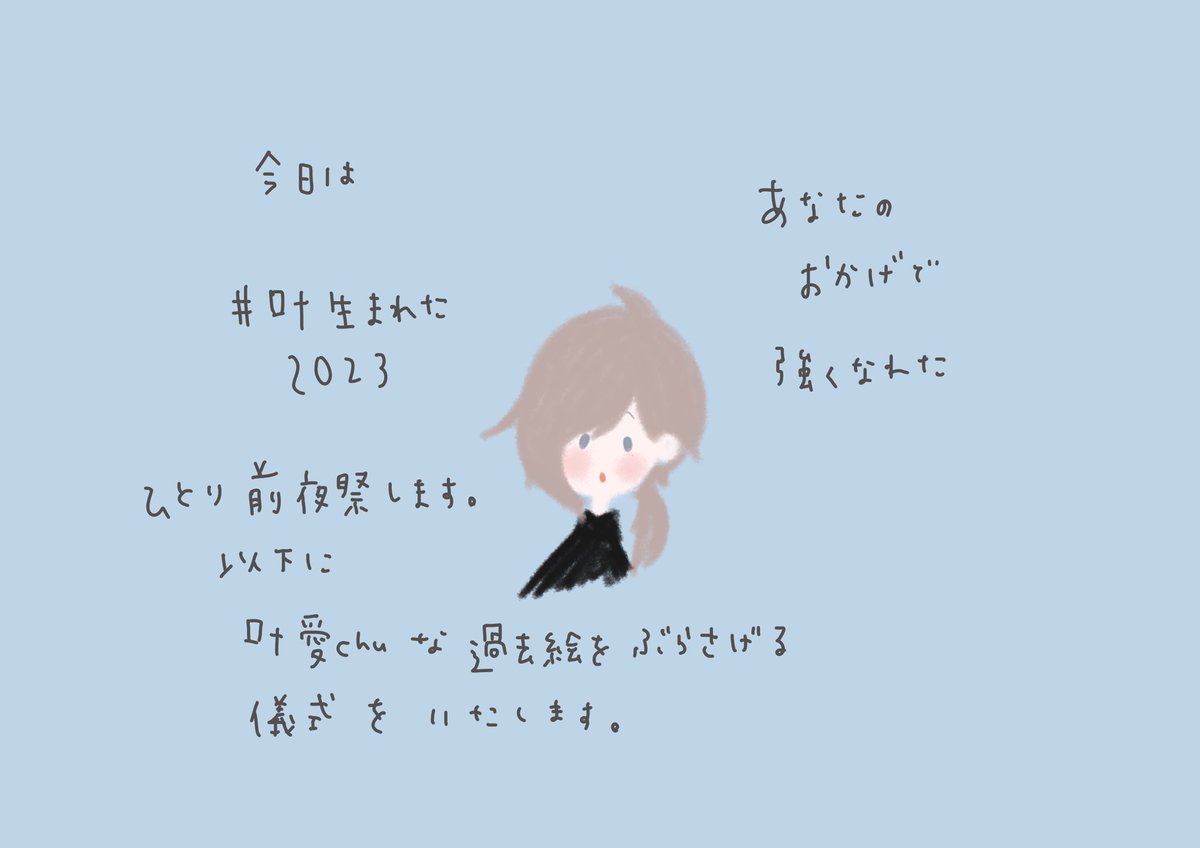 今日は
#叶生まれた
2023
ひとり前夜祭します。
以下に
叶愛chuな過去絵をぶらさげる
儀式をいたします。
あなたの
おかげで
強くなれた